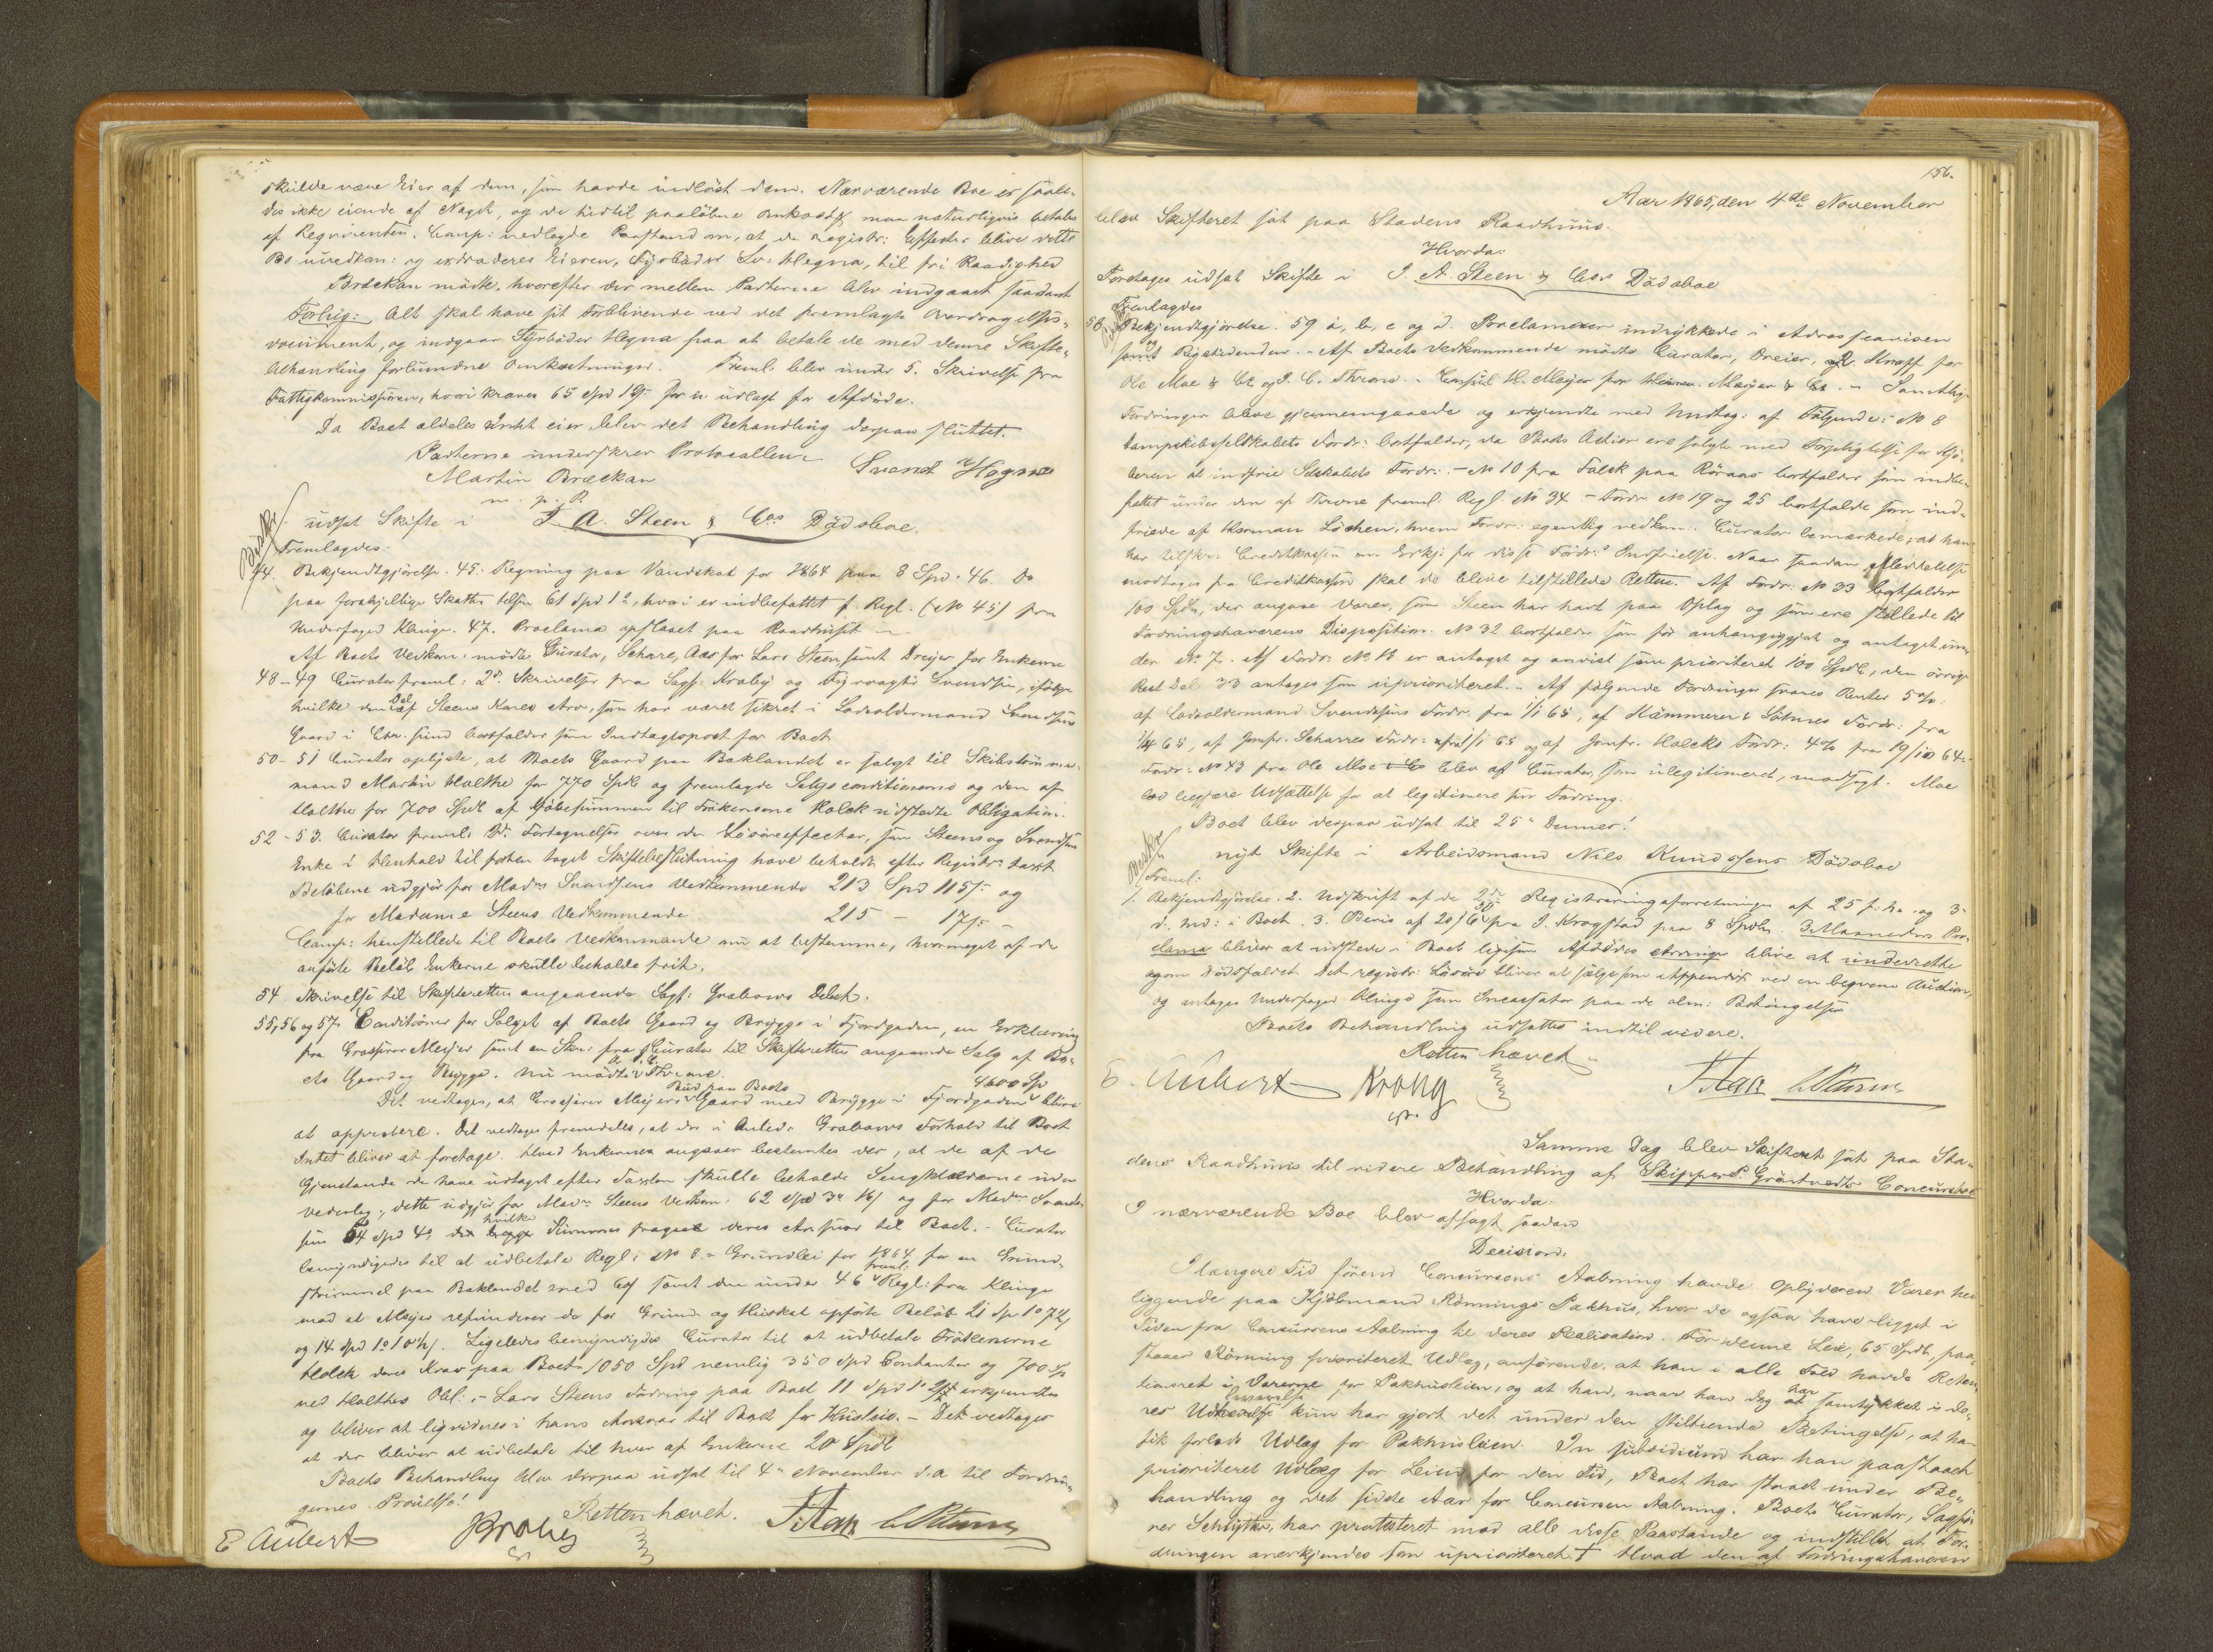 skulde være Eier af dem, som havde indløst dem. Nærværende Boe er saale-
des ikke eiende af Noget, og de hidtil paaløbne Omkostn maa naturligvis betales
af Reqvirenten. Comp: nedlagde Paastand om, at de registr: Effecter blive dette
Bo uvedkom: og extraderes Eieren, Fyrbøder Sv: Hegna, til fri Raadighed
Bræckan mødte, hvorefter der mellem Parterne blev indgaaet saadant
Forlig: Alt skal have sit Forblivende ved det fremlagte Overdragelses-
document, og indgaar Fyrbøder Hegna paa at betale de med denne Skifte-
behandling forbundne Omkostninger. Freml. blev under 5. Skrivelse fra
Fattigkommissionen, hvori kræves 65 Spd 19 for udlagt for Afdøde.
Da Boet aldeles Intet eier, blev det Behandling derpaa sluttet.
Parterne underskrev Protocollen
Martin Bræckan Svend Hegna
m. p. P.
udsat Skifte i J. A. Steen & Cos Dødsboe.
Fremlagdes:
44. Bekjendtgjørelse. 45. Regning paa Vandskat for 1864 paa 8 Spd. 46. Do
paa forskjellige Skatter tilsm 61 Spd 1, hvori er indbefattet f. Regl. (No 45) fra
Underfoged Klinge. 47. Proclama opslaaet paa Raadhuset
Af Boets Vedkom: mødte Curator, Schare, Aas for Lars Steen samt Dreyer for Enkerne
48-49 Curator freml: 2de Skrivelser fra Sagf: Kroby og Fyrvogter Svendsen, ifølge
hvilke den Del af Steens Kones Arv, som har været sikret i Lodsoldermand Svendsens
Gaard i Chr. sund bortfalder som Indtægtspost for Boet
50-51 Curator oplyste, at Boets Gaard paa Baklandet er solgt til Skibstømmer-
mand Martin Halthe for 770 Spdl og fremlagde Salgsconditionerne og den af
Halthe for 700 Spdl af Kjøbesummen til Frøkenerne Holck udstedte Obligation.
52-53. Curator freml. 2de Fortegnelser over de Løsøreeffecter, som Steens og Svendsens
Enke i Henhold til forhen taget Skiftebeslutning have beholdt efter Registr: taxt
Beløbene udgjør for Madm Svendsens Vedkommende 213 Spd 115 og
for Madame Steens Vedkommende 215 - 17
Comp: henstillede til Boets Vedkommende nu at bestemme, hvormeget af de
anførte Beløb Enkerne skulle beholde frit.
54 Skrivelse til Skifteretten angaaende Sagf: Grabows Debet.
55, 56 og 57. Conditioner for Salget af Boets Gaard og Brygge i Fjordgaden, en Erklæring
fra Grosserer Meyer samt en Skr. fra Curator til Skifteretten angaaende Salg af Bo-
ets Gaard og Brygge. Nu mødte Throne.
Det vedtages, at Grosserer Meyers Bud paa Boets Gaard med Brygge i Fjordgaden 4600 Sp bliver
at approbere. Det vedtages fremdeles, at der i Anledn Grabows Forhold til Boet
Intet bliver at foretage. Hvad Enkerne angaaer bestemtes der, at de af de
Gjenstande de have udtaget efter Taxten skulle beholde Sengklæderne uden
Vederlag; dette udgjør for Madm Steens Vedkom. 62 Spd 3 16 og for Madm Svend-
sen 64 Spd 4, hvilke Summer fragaae deres Ansvar til Boet. - Curator
bemyndigedes til at udbetale Regl: No 8 Grundlei for 1864 for en Grund-
strimmel paa Baklandet med samt den under 46 freml: Regl: fra Klinge
mod at Meyer refunderer de for Grund og Huskat opførte Beløb 21 Sp
og 14 Spd. Ligeledes bemyndigedes Curator til at udbetale Frøkenerne
Holck deres Krav paa Boet 1050 Spd nemlig 350 Spd Contanter og 700 Sp
ved Halthes Obl: - Lars Steens Fordring paa Boet 11 Spd erkjendtes
og bliver at liqvideres i hans Ansvar til Boet for Husleie. - Det vedtages
at der bliver at udbetale til hver af Enkerne 20 Spdl
Boets Behandling blev derpaa udsat til 4 November d. A til Fordrin-
gernes Prøvelse!
Retten hævet.
E Aubert Kroby
156.
Aar 1865, den 4de November
blev Skifteret sat paa Stadens Raadhuus.
Hvorda:
Foretages udsat Skifte i J. A. Steen & Cos Dødsboe
Fremlagdes
58 Bekjendtgjørelse. 59 a, b, c og d. Proclamaer indrykkede i Adresseavisen
samt Rigstidenden. - Af Boets Vedkommende mødte Curator, Dreier, og R. Knoff for
Ole Moe & Co og J. C. Throne. Consul H. Meyer for Herm. Meyer & Co. - Samtlige
Fordringer bleve gjennemgaaede og erkjendte med Undtag: af Følgende: No 8
Dampskibsselskabets Fordr: bortfalder, da Boets Actier ere solgte med Forpligtelse for Kjø-
beren at indfrie Selskabets Fordr: - No 10 fra Falck paa Røraas bortfalder som indbe-
fattet under den af Throne freml. Regl. No 34 - Fordr. No 19 og 25 bortfalde som ind-
friede af Herman Løchen, hvem Fordr: egentlig vedkom. Curator bemærkede, at han
har tilskr: Creditkassen om Erkj: for disse Fordr: Indfrielse. Naar saadan Meddelelse
modtages fra Creditkassen skal de blive tilstillede Retten. Af Fordr. No 33 bortfalder
100 Spdl, der angaae Varer, som Steen har havt paa Oplag og som ere stillede til
Fordringshaverens Disposition. No 32 bortfalder som før anhængiggjort og antaget un-
der No 7. Af Fordr. No 16 er antaget og anvist som prioriteret 100 Spdl, den øvrige
Rest Del 33 antages som uprioriteret. - Af følgende Fordringer svares Renter 5 %:
af Lodsoldermand Svendsens Fordr. fra 1/1 65, af Hammerer & Løtnes Fordr: fra
1/4 65, af Jomfr. Scharres Fordr: fra 1/1 65 og af Jomfr. Holcks Fordr: 4% fra 19/10 64.
Fordr: No 43 fra Ole Moe blev af Curator, som ulegitimeret, modsagt. Moe
lod begjære Udsættelse for at legitimere sin Fordring.
Boet blev derpaa udsat til 25 Dennes!
nyt Skifte i Arbeidsmand Nils Knudssens Dødsboe
Freml:
1. Bekjendtgjørelse. 2. Udskrift af de 2de Registreringsforretninger af 25 f. M. og 3
d. Md: i Boet. 3. Bevis af 20/6 fra J. Krogstad paa 8 Spdl. 3 Maaneders Pro-
clama bliver at udstede i Boet ligesom Afdødes Arvinger blive at underrette
ogom Dødsfaldet. Det registr: Løsøre bliver at sælge som Appendix ved en beqvem Auction,
og antages Underfoged Klinge som Incassator paa de alm: Betingelser
Boets Behandling udsattes indtil videre.
Retten hævet
E. Aubert Kroby
Samme Dag blev Skifteret sat paa Sta-
dens Raadhuus til videre Behandling af Skipper P. Grøntvedts Concursboe
Hvorda:
I nærværende Boe blev afsagt saadan
Decision:
I længere Tid førend Concursens Aabning havde Opbyderen Varer hen-
liggende paa Kjøbmand Rønnings Pakhus, hvor de ogsaa have ligget i
Tiden fra Concursens Aabning til deres Realisation. For denne Leie, 65 Spdl, paa-
staaer Rønning prioriteret Udlæg, anførende, at han i alle Fald havde Reten-
tionsret i Varerne for Pakhusleien, og at han, naar han dog har samtykket i de-
res Udlevering kun har gjort det under den stiltiende Betingelse, at han
fik forlods Udlæg for Pakhusleien. In subsidium har han paastaaet
prioriteret Udlæg for Leien for den Tid, Boet har staaet under Be-
handling og det sidste Aar før Concursen Aabning. Boets Curator, Sagfø-
rer Schlytter, har protesteret mod alle disse Paastande og indstillet at For-
dringen anerkjendes som uprioriteret † Hvad den af Fordringshaveren